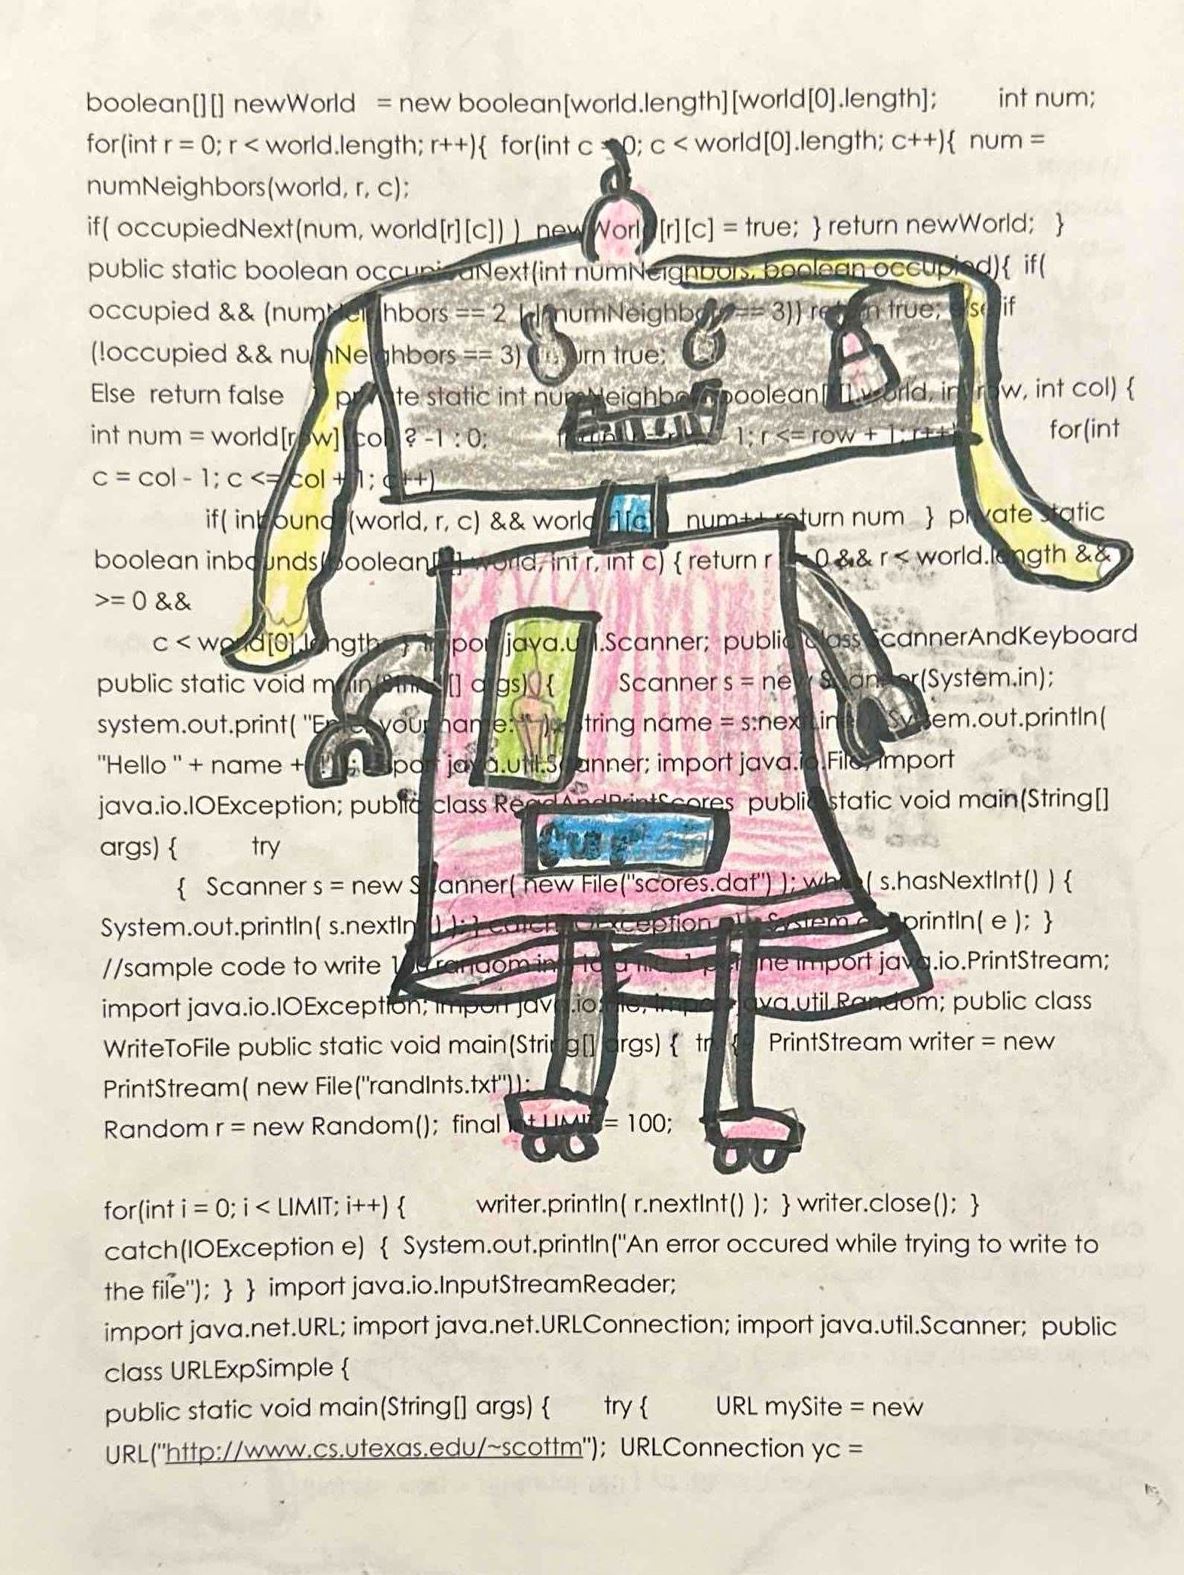 boolean[][] newWorld = new boolean[world.length][world[0].length]; int num;
for(int r = 0; r < world.length; r++){ for(int c = 0; c < world[0].length; c++){ num =
numNeighbors(world, r, c);
if( occupiedNext(num, world[r][c]) ) newWorld[r][c] = true; } return newWorld; }
public static boolean occupiedNext(int numNeighbors, boolean occupied){ if(
occupied && (numNeighbors == 2 || numNeighbors == 3)) return true; else if
(!occupied && numNeighbors == 3) return true;
Else return false private static int numNeighbors(boolean[][] world, int row, int col) {
int num = world[row][col] ? -1 : 0; 1; r <= row + 1; r++) for(int
c = col - 1; c <= col + 1; c++)
if( inbounds(world, r, c) && world[r][c] ) num++ return num } private static
boolean inbounds(boolean[][] world, int r, int c) { return r >= 0 && r < world.length &&
>= 0 &&
c < world[0].length } import java.util.Scanner; public class ScannerAndKeyboard
public static void main(String[] args) { Scanner s = new Scanner(System.in);
system.out.print( "Enter your name: " ); String name = s.nextLine(); System.out.println(
"Hello " + name + import java.util.Scanner; import java.io.File; import
java.io.IOException; public class ReadAndPrintScores public static void main(String[]
args) { try
{ Scanner s = new Scanner( new File("scores.dat") ); while( s.hasNextInt() ) {
System.out.println( s.nextInt() ); } catch(IOException e) System.out.println( e ); }
//sample code to write 100 random ints to a file 1 per line import java.io.PrintStream;
import java.io.IOException; import java.io.File; import java.util.Random; public class
WriteToFile public static void main(String[] args) { try { PrintStream writer = new
PrintStream( new File("randInts.txt"));
Random r = new Random(); final int LIMIT = 100;
for(int i = 0; i < LIMIT; i++) { writer.println( r.nextInt() ); } writer.close(); }
catch(IOException e) { System.out.println("An error occured while trying to write to
the file"); } } import java.io.InputStreamReader;
import java.net.URL; import java.net.URLConnection; import java.util.Scanner; public
class URLExpSimple {
public static void main(String[] args) { try { URL mySite = new
URL("http://www.cs.utexas.edu/~scottm"); URLConnection yc =